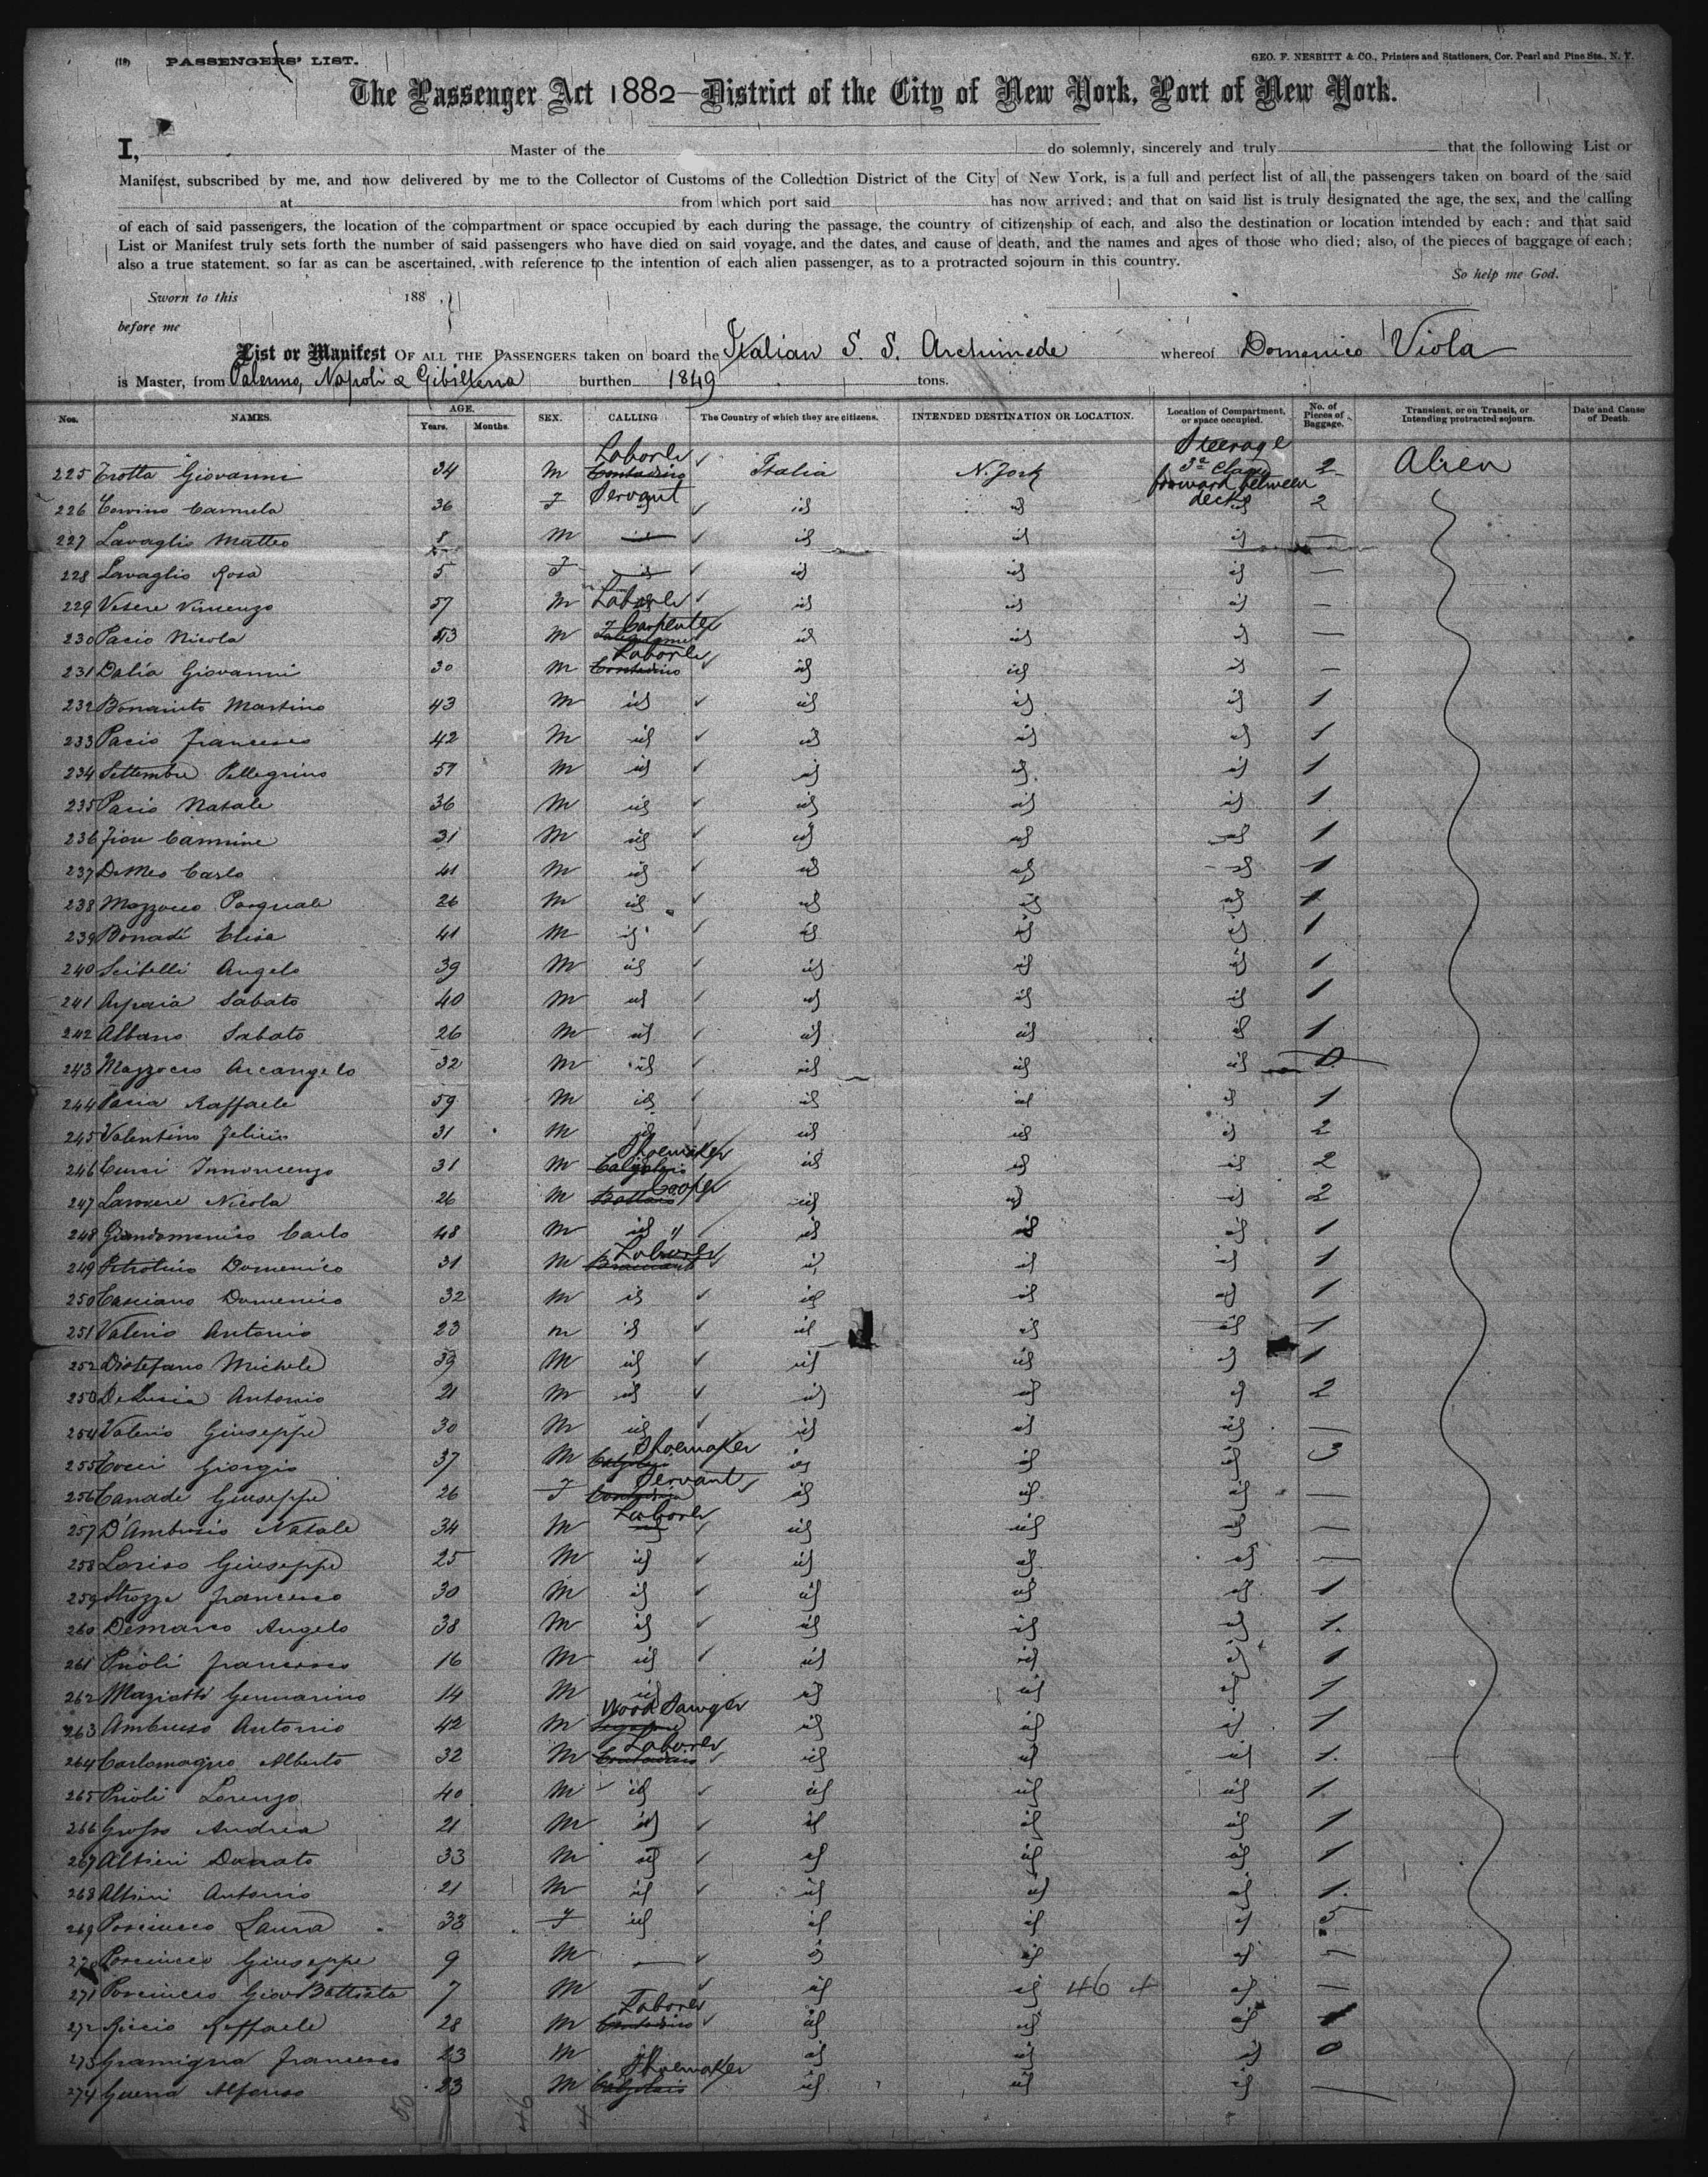 (18) PASSENGERS' LIST. GEO. F. NESBITT & CO., Printers and Stationers, Cor. Pearl and Pine Sts., N. Y.
The Passenger Act 1882—District of the City of New York, Port of New York.
I, Master of the do solemnly, sincerely and truly that the following List or
Manifest, subscribed by me, and now delivered by me to the Collector of Customs of the Collection District of the City of New York, is a full and perfect list of all the passengers taken on board of the said
at from which port said has now arrived; and that on said list is truly designated the age, the sex, and the calling
of each of said passengers, the location of the compartment or space occupied by each during the passage, the country of citizenship of each, and also the destination or location intended by each; and that said
List or Manifest truly sets forth the number of said passengers who have died on said voyage, and the dates, and cause of death, and the names and ages of those who died; also, of the pieces of baggage of each;
also a true statement, so far as can be ascertained, with reference to the intention of each alien passenger, as to a protracted sojourn in this country.
So help me God.
Sworn to this 188
before me
List or Manifest OF ALL THE PASSENGERS taken on board the Italian S. S. Archimede whereof Domenico Viola
is Master, from Palermo, Napoli & Gibilterra burthen 1849 tons.
Nos. NAMES. AGE. Years. Months. SEX. CALLING The Country of which they are citizens. INTENDED DESTINATION OR LOCATION. Location of Compartment, or space occupied. No. of Pieces of Baggage. Transient, or on Transit, or Intending protracted sojourn. Date and Cause of Death.
225 Trotta Giovanni 34 M Contadino Laborer Italia N. York Steerage 3a Classe forward between decks 2 Alien
226 Carmela 36 F Servant id id id 2
227 Lavaglio Matteo 8 M id id id id —
228 Lavaglio Rosa 5 F id id id id —
229 Vincenzo 57 M Laborer id id id —
230 Pacio Nicola 43 M Carpenter id id id —
231 Dalia Giovanni 30 M Contadino Laborer id id id —
232 Bonaiuto Martino 43 M id id id id 1
233 Pacio Francesco 42 M id id id id 1
234 Settembre Pellegrino 57 M id id id id 1
235 Pacio Natale 36 M id id id id 1
236 Fiore Carmine 31 M id id id id 1
237 DeMeo Carlo 41 M id id id id 1
238 Mazzocco Pasquale 26 M id id id id 1
239 Bonadi Elisa 41 M id id id id 1
240 Scibelli Angelo 39 M id id id id 1
241 Arpaia Sabato 40 M id id id id 1
242 Albano Sabato 26 M id id id id 1
243 Mazzocco Arcangelo 32 M id id id id 0
244 Raffaele 59 M id id id id 1
245 Valentino Felicio 31 M id id id id 2
246 Curci Innoncenzo 31 M Calzolaio Shoemaker id id id 2
247 Nicola 26 M Bottaio Cooper id id id 2
248 Giandomenico Carlo 48 M id " id id id 1
249 Petrolino Domenico 31 M Bracciante Laborer id id id 1
250 Casciano Domenico 32 M id id id id 1
251 Valerio Antonio 23 M id id id id 1
252 Distefano Michele 39 M id id id id 1
253 DeLucia Antonio 21 M id id id id 2
254 Valerio Giuseppe 30 M id id id id —
255 Cocci Giorgio 37 M Calzolaio Shoemaker id id id 3
256 Canade Giuseppe 26 F Contadina Servant id id id —
257 D'Ambrosio Natale 34 M id Laborer id id id —
258 Loriso Giuseppe 25 M id id id id —
259 Strozza Francesco 30 M id id id id 1
260 Demarco Angelo 38 M id id id id 1.
261 Prioli Francesco 16 M id id id id 1
262 Maziotti Gennarino 14 M id id id id 1
263 Ambruso Antonio 42 M Segatore Wood Sawyer id id id 1
264 Carlomagno Alberto 32 M Contadino Laborer id id id 1.
265 Prioli Lorenzo 40 M id id id id 1.
266 Grosso Andrea 21 M id id id id 1
267 Altieri Donato 33 M id id id id 1
268 Altieri Antonio 21 M id id id id 1.
269 Laura 33 F id id id id 5
270 Giuseppe 9 M — id id id —
271 Giov Battista 7 M id id 46 4 id —
272 Riccio Raffaele 28 M Contadino Laborer id id id 1
273 Gramigna Francesco 23 M id id id id 0
274 Guerra Alfonso 23 M Calzolaio Shoemaker id id id —
50 46 4